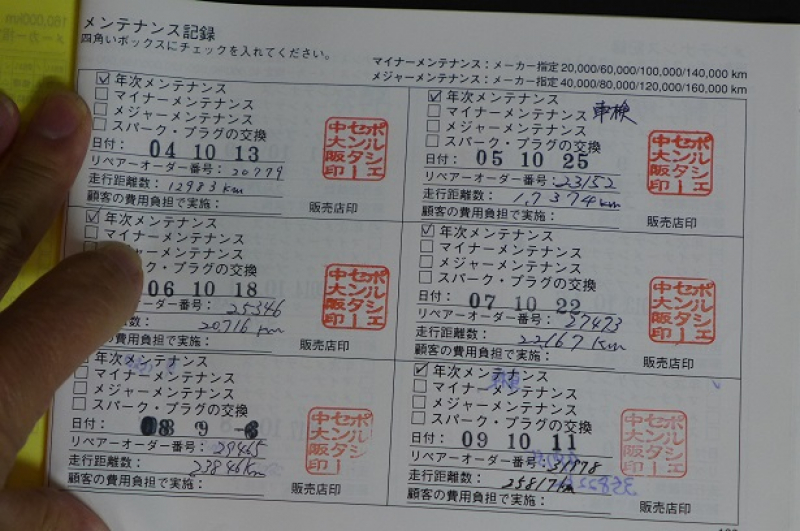 メンテナンス記録
四角いボックスにチェックを入れてください。
マイナーメンテナンス：メーカー指定 20,000/60,000/100,000/140,000 km
メジャーメンテナンス：メーカー指定 40,000/80,000/120,000/160,000 km
年次メンテナンス
マイナーメンテナンス
メジャーメンテナンス
スパーク・プラグの交換
日付： 04 10 13
リペアーオーダー番号： 20779
走行距離数： 12983 km
顧客の費用負担で実施：
販売店印
ポルシェ
センタシー
中大阪印
年次メンテナンス
マイナーメンテナンス 車検
メジャーメンテナンス
スパーク・プラグの交換
日付： 05 10 25
リペアーオーダー番号： 23152
走行距離数： 17374 km
顧客の費用負担で実施：
販売店印
年次メンテナンス
マイナーメンテナンス
メンテナンス
ク・プラグの交換
06 10 18
オーダー番号： 25346
数： 20716 km
の費用負担で実施：
販売店印
年次メンテナンス
マイナーメンテナンス
メジャーメンテナンス
スパーク・プラグの交換
日付： 07 10 22
リペアーオーダー番号： 27473
走行距離数： 22167 km
顧客の費用負担で実施：
販売店印
年次メンテナンス
マイナーメンテナンス
メジャーメンテナンス
スパーク・プラグの交換
日付： 08 9 -6
リペアーオーダー番号： 29465
走行距離数： 23846 km
顧客の費用負担で実施：
販売店印
年次メンテナンス
マイナーメンテナンス
メジャーメンテナンス
スパーク・プラグの交換
日付： 09 10 11
リペアーオーダー番号： 31978
走行距離数： 25817 km
顧客の費用負担で実施：
販売店印